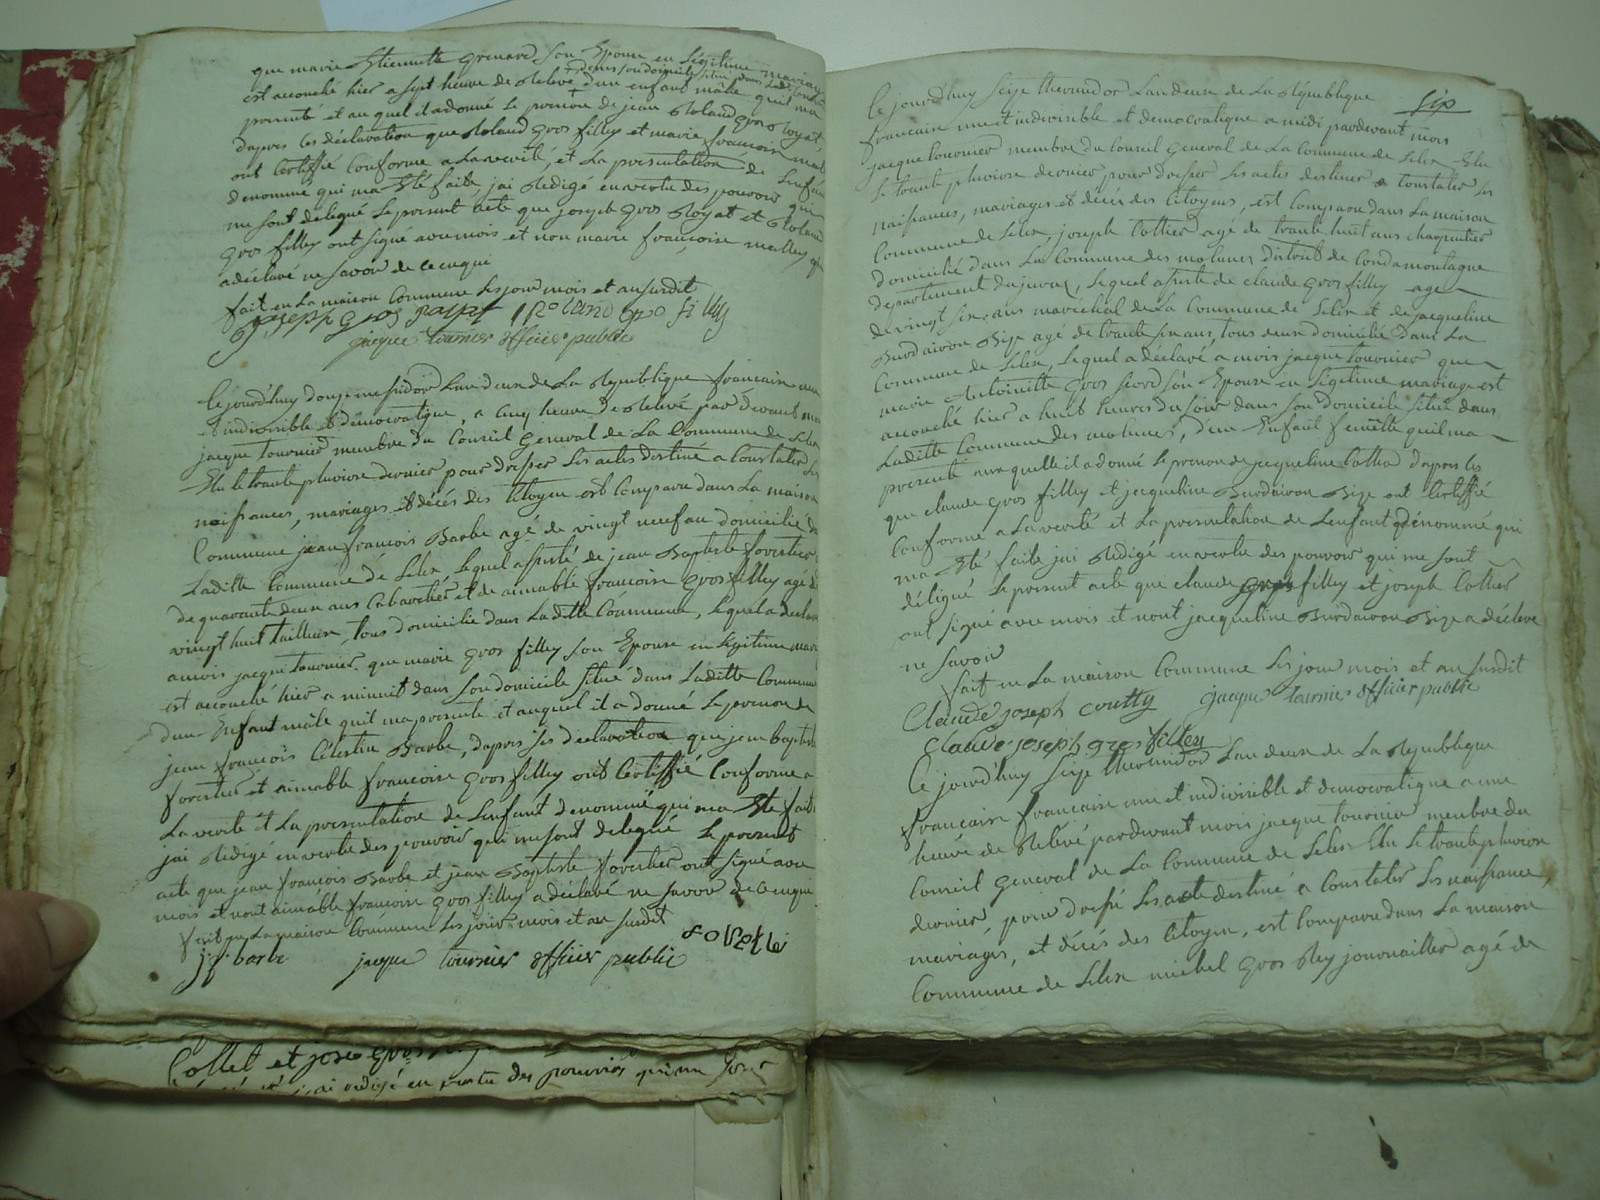 que marie Etiennette grenard son Epouse en legitime mariage
est accouché hier a sept heure de Relevé dans son domicile situé dans
d'un enfant mâle qu'il ma
presenté et au quel il a donné le prenom de jean Roland gros Royat,
dapres les déclaration que Roland gros filley et marie francoise
ont certiffié conforme a la verité, et la presentation de Lenfant
denommé qui ma Eté faite, jai Redigé en vertu des pouvoirs qui
me sont deliqué le present acte que joseph gros Royat et Roland
gros filley ont signé avec mois et non marie françoise
a déclaré ne savoir de ce enquis
fait en La maison Commune les jour mois et an susdit
joseph gros Royat Roland gro filley
jacque tournier officier public
Ce jourd'huy douze messidor Lan deux de La Republique francaise une
et indivisible et démocratique, a cinq heure de Relevé par devant moi
jacque tournier membre du Conseil General de La Commune de Lelex
Elu le trante pluviose dernier pour dresser les actes destiné a Constater les
naissances, mariages et décès des Citoyen est Comparu dans La maison
Commune jean francois Barbe agé de vingt neuf an domicilié d
Laditte Commune de Lelex Lequel assisté de jean Baptiste forestier
de quarante deux ans Cabaretier et de aimable francoise gros filley agé de
vingt huit tailleuse, tous domicilie dans Laditte Commune, lequel a declaré
a mois jacque tournier que marie gros filley son Epouse en legitime mari
est accouché hier a minuit dans son domicile situé dans Laditte Commune
dun Enfant mâle quil ma presenté et auquel il a donné le prenom de
jean francois Célestin Barbe, dapres les déclaration que jean baptiste
forestier et aimable francoise gros filley ont Certiffié Conforme a
La verité et La presentation de Lenfant denommé qui ma Eté faite
jai Redigé en vertu des pouvoir qui me sont delegué le present
acte que jean francois Barbe et jean Baptiste forestier ont signé avec
mois et nont aimable francoise gros filley a déclaré ne savoir de ce enquis
fait en La maison Commune les jour mois et an susdit
jf barbe jacque tournier officier public
Collet et jose gros
jai redigé en vertu des pouvoirs qui me sont
six
Ce jourd'huy seize thermidor Lan deux de La Republique
francaise une et indivisible et democratique a midi pardevant mois
jacque tournier membre du Conseil General de La Commune de Lelex Elu
le trante pluviose dernier pour dresser les actes destiner a Constater les
naissances, mariages et décés des Citoyens, est Comparu dans La maison
Commune de Lelex joseph Cottier agé de trante huit ans charpentier
domicilié dans La Commune des molunes district de Condamontagne
departement du jura, lequel assisté de claude gros filley age
de vingt six ans maréchal de La Commune de Lelex et de jacqueline
Burdairon Bize agé de trante six ans, tous deux domicilié dans La
Commune de Lelex, lequel a déclaré a mois jacque tournier que
marie Antoinette gros fiord son Epouse en Legitime mariage est
accouché hier a huit heures du soir dans son domicile situé dans
Laditte Commune des molunes, d'un Enfant femelle quil ma
presenté auxquelle il a donné le prenom de jacqueline Cottier dapres les
que claude gros filley et jacqueline Burdairon Bize ont Certiffié
Conforme a La verité et La presentation de Lenfant dénommé qui
ma Eté faite jai Redigé en vertu des pouvoir qui me sont
déligué le present acte que claude gros filley et joseph Cottier
ont signé avec mois et nont jacqueline Burdairon Bize a déclaré
ne savoir
fait en La maison Commune les jour mois et an susdit
Claude joseph jacque tournier officier public
Claude joseph gros filley
Ce jourd'huy seize thermidor Lan deux de La Republique
francaise francaise une et indivisible et democratique a une
heure de Relevé pardevant mois jacque tournier membre du
Conseil General de La Commune de Lelex Elu le trante pluviose
dernier, pour dressé les acte destiné a Constater les naissance,
mariages, et décès des Citoyen, est Comparu dans La maison
Commune de Lelex michel gros Rey journaillier agé de